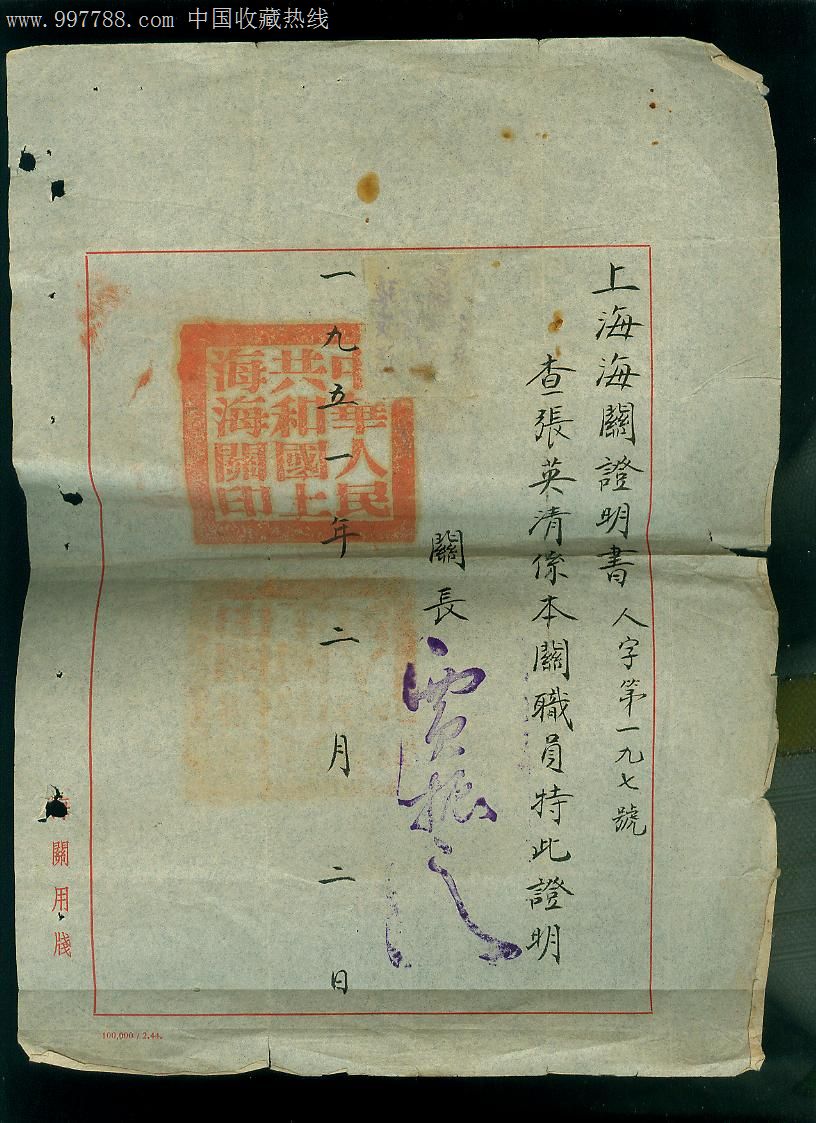 www.997788.com 中国收藏热线
上海海關證明書 人字第一九七號
查張英清係本關職員特此證明
關長
賈振之
一九五一年二月二日
中華人民
共和國上
海海關印
海關用牋
100,000 / 2.44.